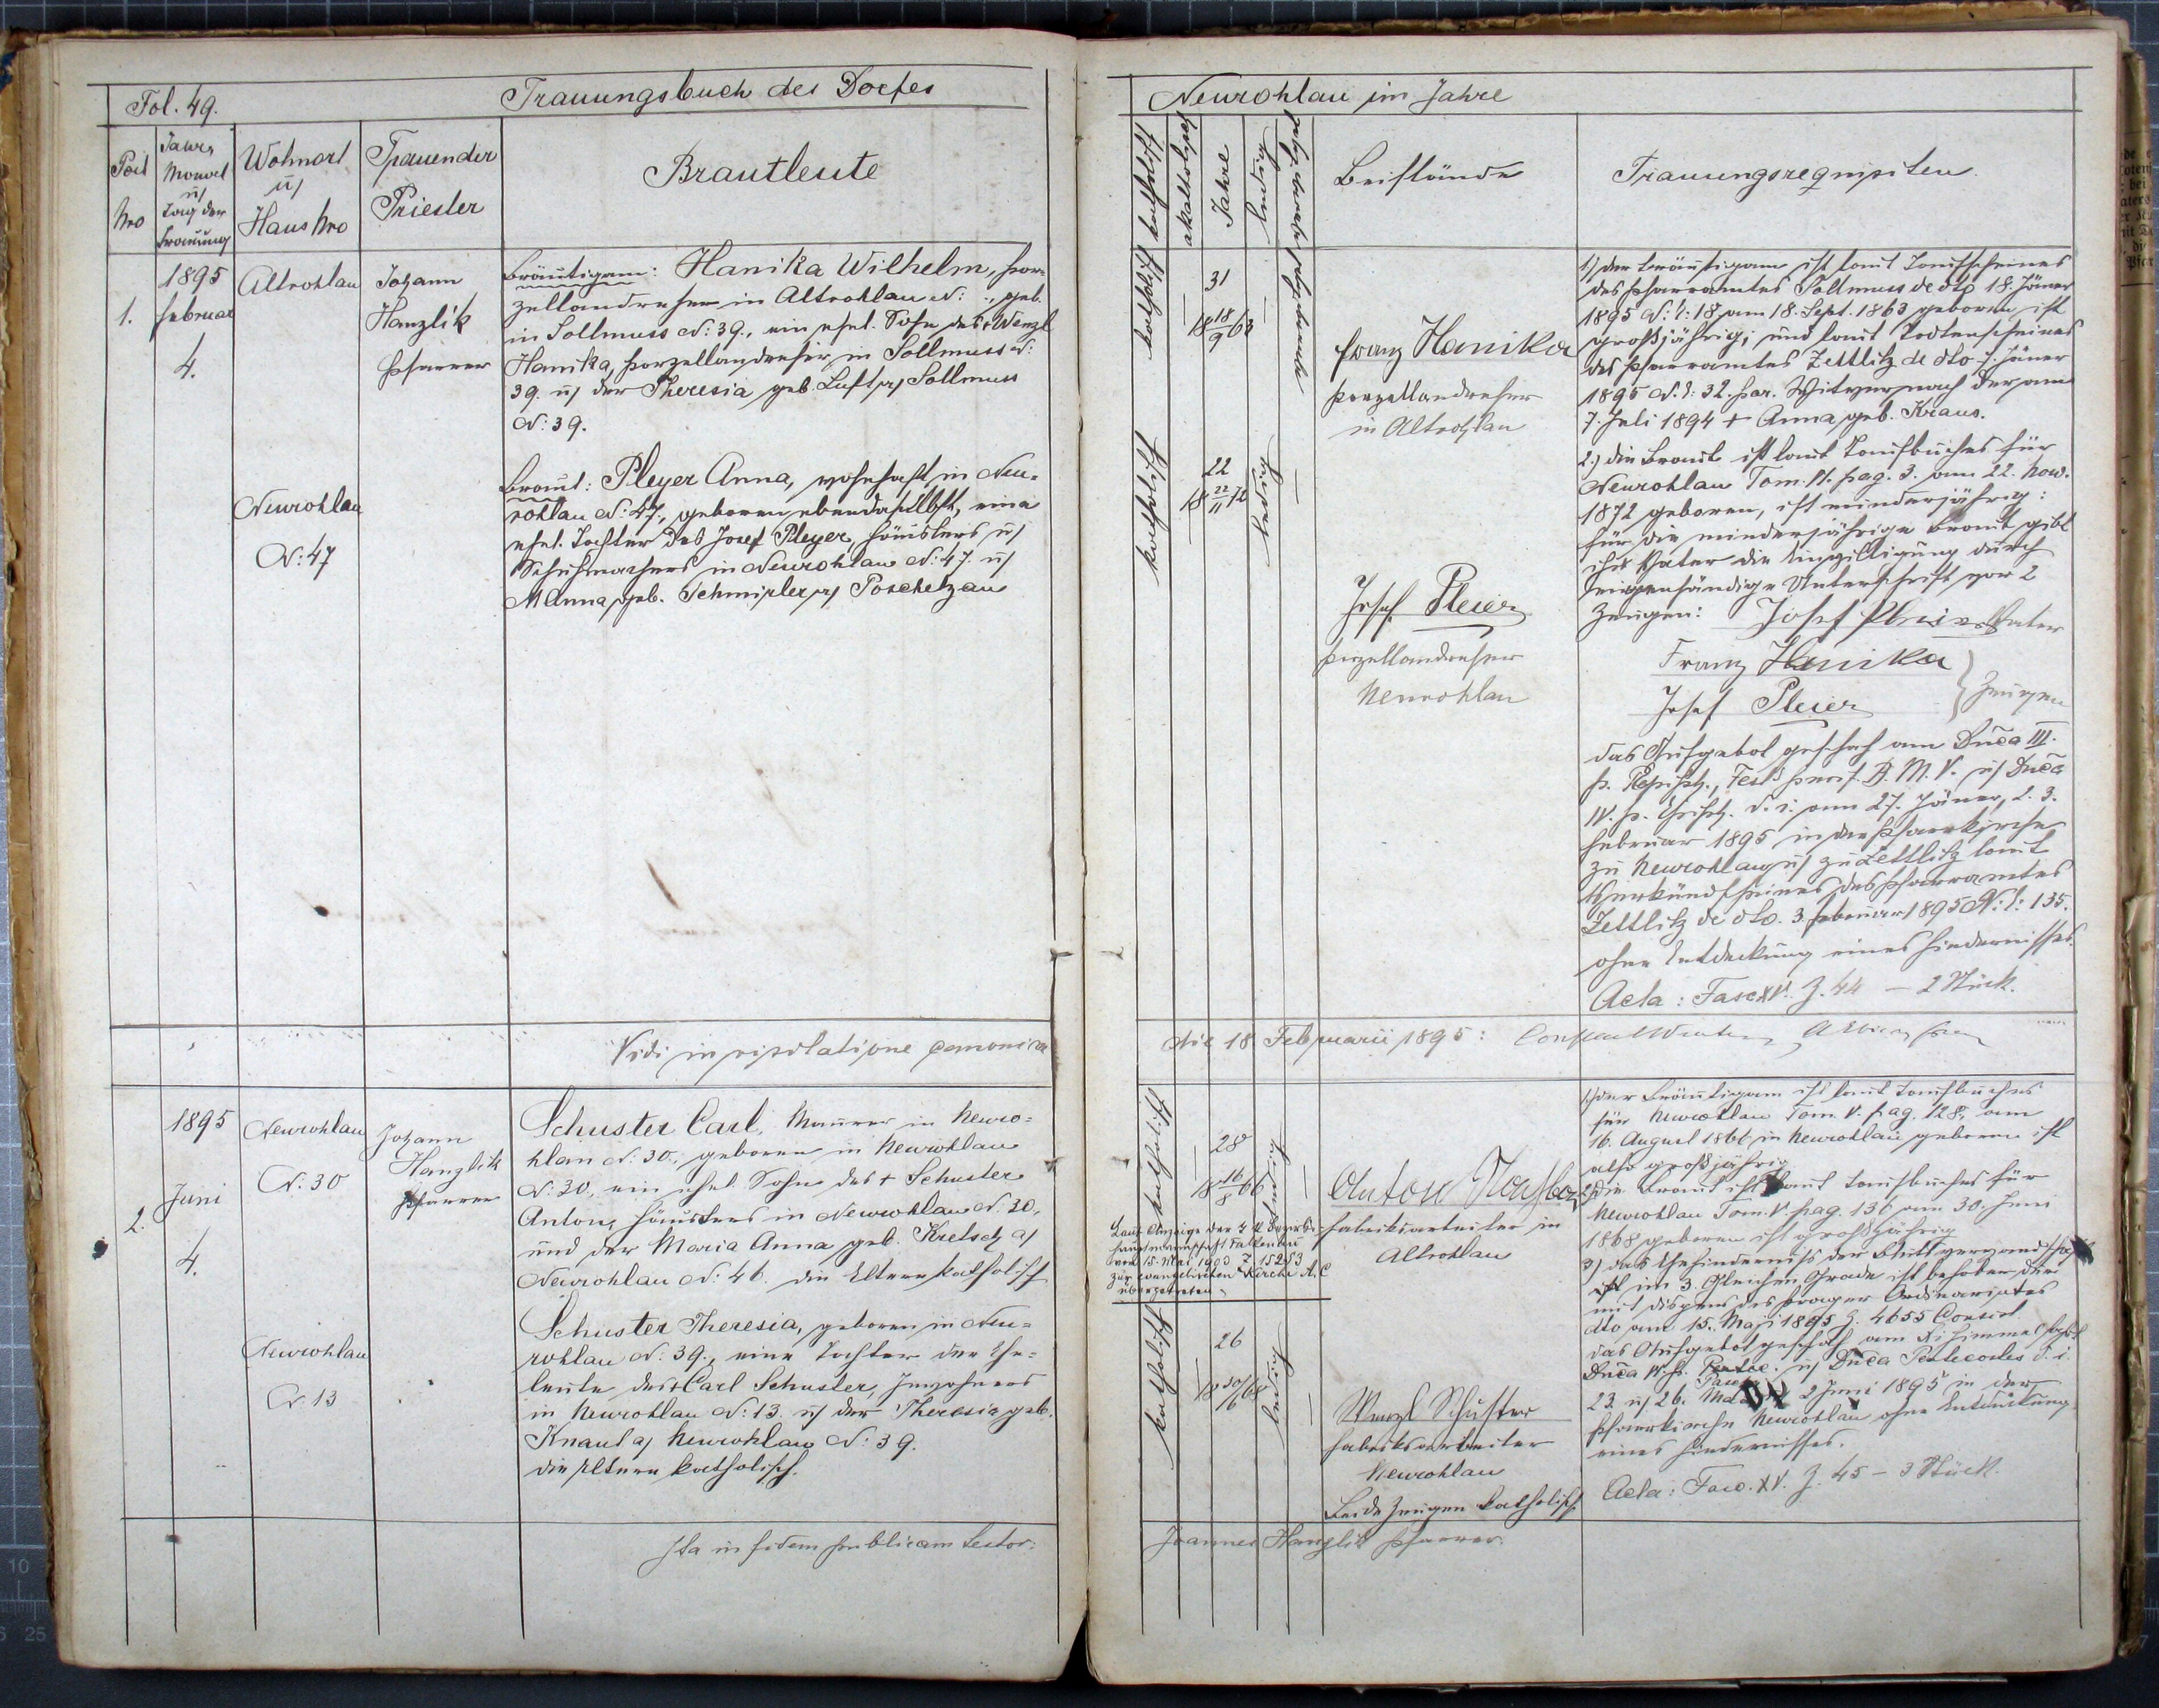 Fol. 49.
Trauungsbuch des Dorfes
Post
Nro
Jahr,
Monat
u/
Tag der
Trauung
Wohnort
u/
Haus Nro
Trauender
Priester
Brautleute
1.
1895
Februar
4.
Altrohlau
Johann
Hanzlik
Pfarrer
Bräutigam: Hanika Wilhelm, Por-
zellandreher in Altrohlau N: ., geb.
in Sollmuss N: 39., ein ehel. Sohn des + Wenzl
Hanika, Porzellandreher in Sollmuss N:
39. u/ der Theresia geb. Luft Sollmuss
N: 39.
Neurohlau
N: 47
Braut: Pleyer Anna, wohnhaft in Neu-
rohlau N: 47., geboren ebendaselbst, eine
ehel. Tochter des Josef Pleyer, Häuslers u/
Schuhmachers in Neurohlau N: 47. u/
M Anna geb. Poschetzau
Vidi in canonica
2.
1895
Juni
4.
Neurohlau
N. 30
Johann
Hanzlik
Pfarrer
Schuster Carl, Maurer in Neuro-
hlau N: 30., geboren in Neurohlau
N: 30., ein ehel. Sohn des + Schuster
Anton, Häuslers in Neurohlau N: 30,
und der Maria Anna geb. Kretsch a/
Neurohlau N: 46. die Eltern katholisch
Neurohlau
N. 13
Schuster Theresia, geboren in Neu-
rohlau N: 39., eine Tochter der Ehe-
leute des + Carl Schuster, Inwohners
in Neurohlau N: 13. u/ der Theresia geb.
Knaut a/ Neurohlau N: 39.
die Eltern katholisch.
Ita in fidem publicam testor:
Neurohlau im Jahre
katholisch
akatholisch
Jahre
ledig
Beistände
Trauungsrequisiten
katholisch
31
18 18/9 63
Franz Hanika
Porzellandreher
in Altrohlau
katholisch
22
18 22/11 72
ledig
Josef Pleier
Porzellandreher
Neurohlau
1/ der Bräutigam ist laut Taufscheines
des Pfarramtes Sollmuss de dto 18. Jäner
1895 N: E: 18 am 18. Sept. 1863 geboren, ist
großjährig; und laut Todtenscheines
des Pfarramtes Zettlitz de dto 7. Jäner
1895 N. E: 32. Witwer nach der am
7. Juli 1894 + Anna geb. Kraus.
2.) die Braut ist laut Taufbuches für
Neurohlau Tom. pag. 3. am 22. Nov.
1872 geboren, ist minderjährig:
für die minderjährige Braut gibt
ihr Vater die Einwilligung durch
eigenhändige Unterschrift vor 2
Zeugen: Josef Vater
Franz Hanika
Josef Pleier
Zeugen
das Aufgebot geschah am Dnca III.
p. Epiph., Fest Purif. B. M. V. u/ Dnca
IV. p. Epiph. d. i. am 27. Jäner, 2. 3.
Februar 1895 in der Pfarrkirche
zu Neurohlau u/ zu Zettlitz laut
Verkündscheines des Pfarramtes
Zettlitz de dto. 3. Februar 1895 N: E: 135.
ohne Entdeckung eines Hindernisses.
Acta: Fasc XV. Z. 44 – 2 Stück.
die 18 Februarii 1895:
katholisch
28
18 16/8 66
ledig
Anton
Fabriksarbeiter in
Altrohlau
Laut Anzeige der k k Bezirks-
hauptmannschaft Falkenau
vom 15. Mai 1903 Z 15253
zur evangelischen Kirche A. C
übergetreten.
katholisch
26
18 30/6 68
ledig
Wenzl Schuster
Fabriksarbeiter
Neurohlau
Beide Zeugen katholisch
1/ der Bräutigam ist laut Taufbuches
für Neurohlau Tom. V. pag. 128, am
16. August 1866 in Neurohlau geboren ist
also großjährig
2/ die Braut ist laut Taufbuches für
Neurohlau Tom. V. pag. 136 am 30. Juni
1868 geboren ist großjährig
3) das Ehehinderniß der Blutsverwandschaft
im 3. Gleichen Grade ist behoben
mit Dispens des Prager Ordinariates
dto am 15. Maji 1895 Z. 4655 Consist.
das Aufgebot geschah am Xi Himmelfahrt
Dnca u/ Dnca Pentecostes d. i.
23. u/ 26. Mai 2 Juni 1895 in der
Pfarrkirche Neurohlau ohne Entdeckung
eines Hindernisses.
Acta: Fasc. XV. Z. 45 – 3 Stück.
Joannes Hanzlik Pfarrer.